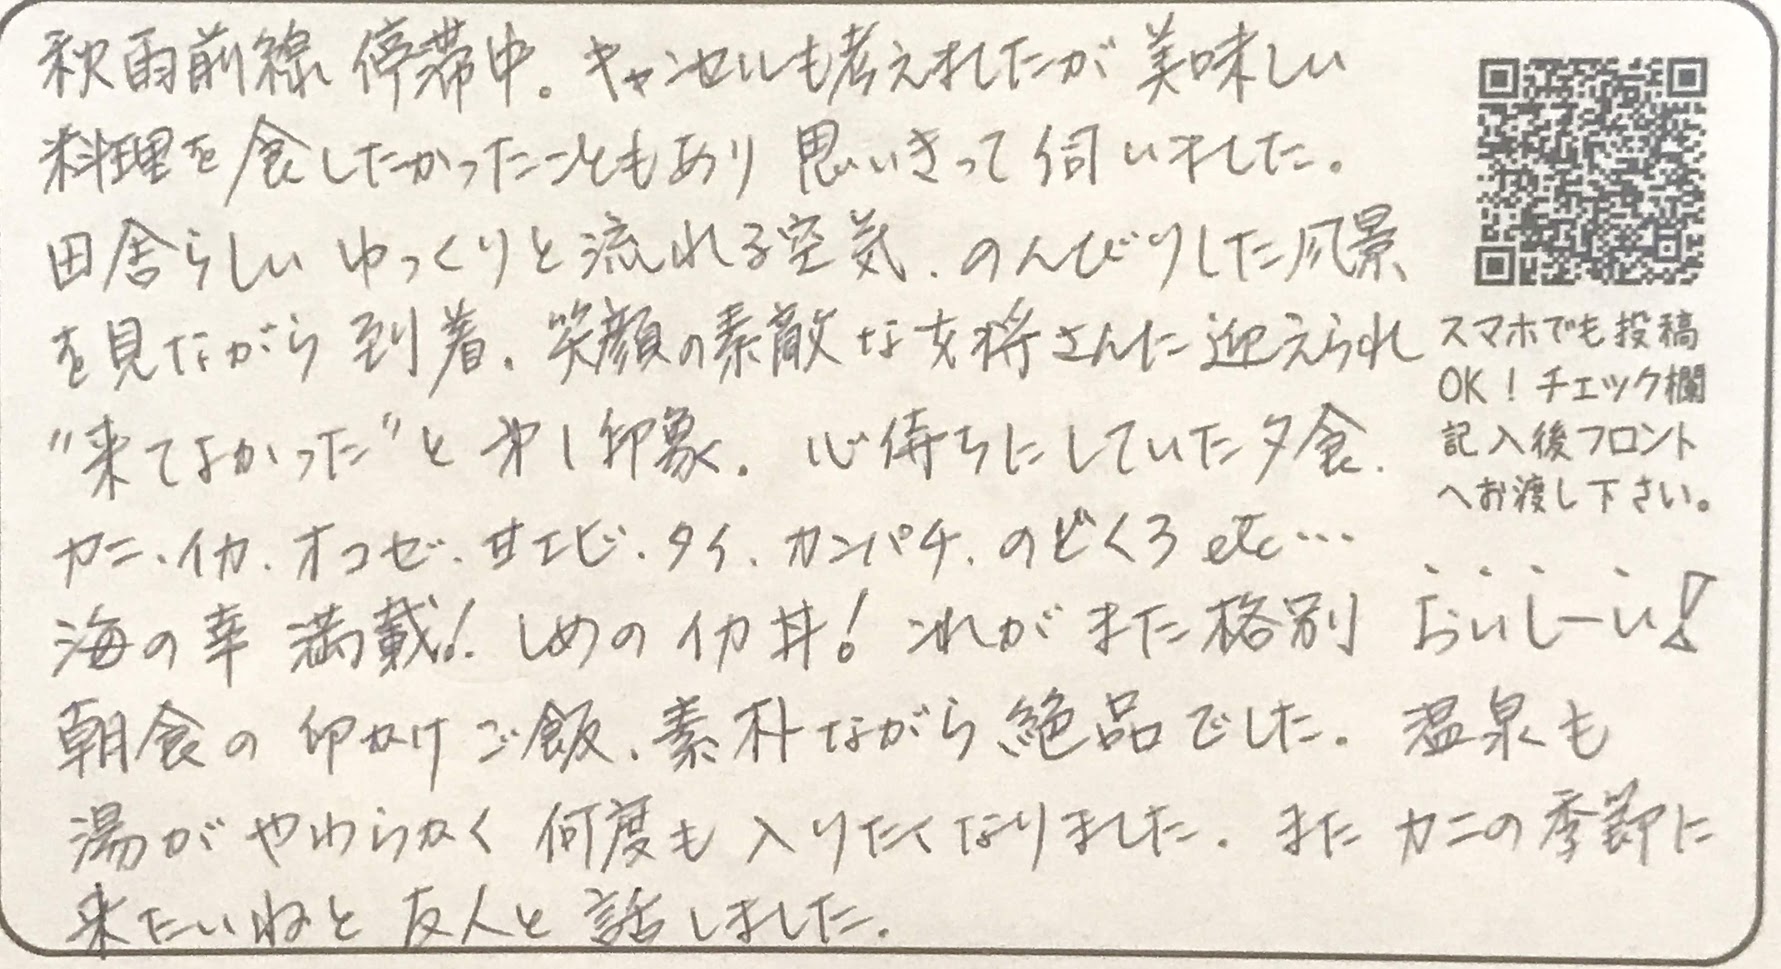 秋雨前線 停滞中。キャンセルも考えましたが 美味しい
料理を食したかったこともあり 思いきって伺いました。
田舎らしい ゆっくりと流れる空気、のんびりした風景
を見ながら到着。笑顔の素敵な女将さんに迎えられ
"来てよかった"と 第1印象。 心待ちにしていた夕食、
カニ、イカ、オコゼ、甘エビ、タイ、カンパチ、のどくろ etc…
海の幸 満載! しめの イカ丼! これがまた格別 おいしーい!
朝食の 卵かけご飯、素朴ながら絶品でした。 温泉も
湯がやわらかく 何度も入りたくなりました。 また カニの季節に
来たいねと 友人と 話しました。
スマホでも投稿
OK!チェック欄
記入後フロント
へお渡し下さい。